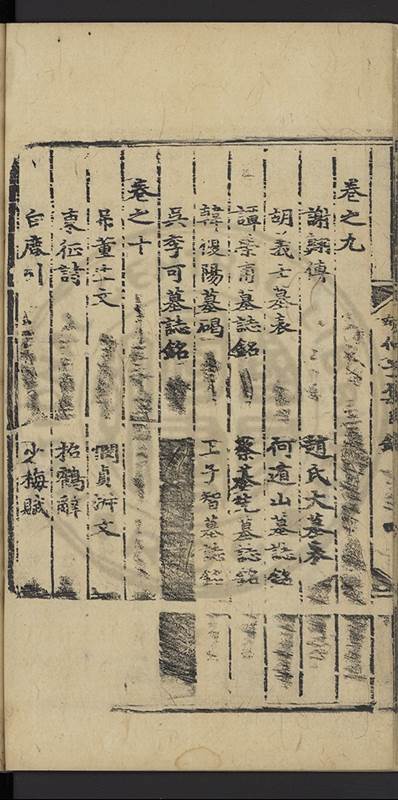 卷之九
謝翱傳 趙氏大墓表
胡義士墓表 何道山墓誌銘
譚 墓誌銘 蔡基芝墓誌銘
韓 陽墓碣 王子智墓誌銘
吳季可墓誌銘
卷之十
吊董生文 閔貞 文
東征詩 招鶴辭
白 少梅賦